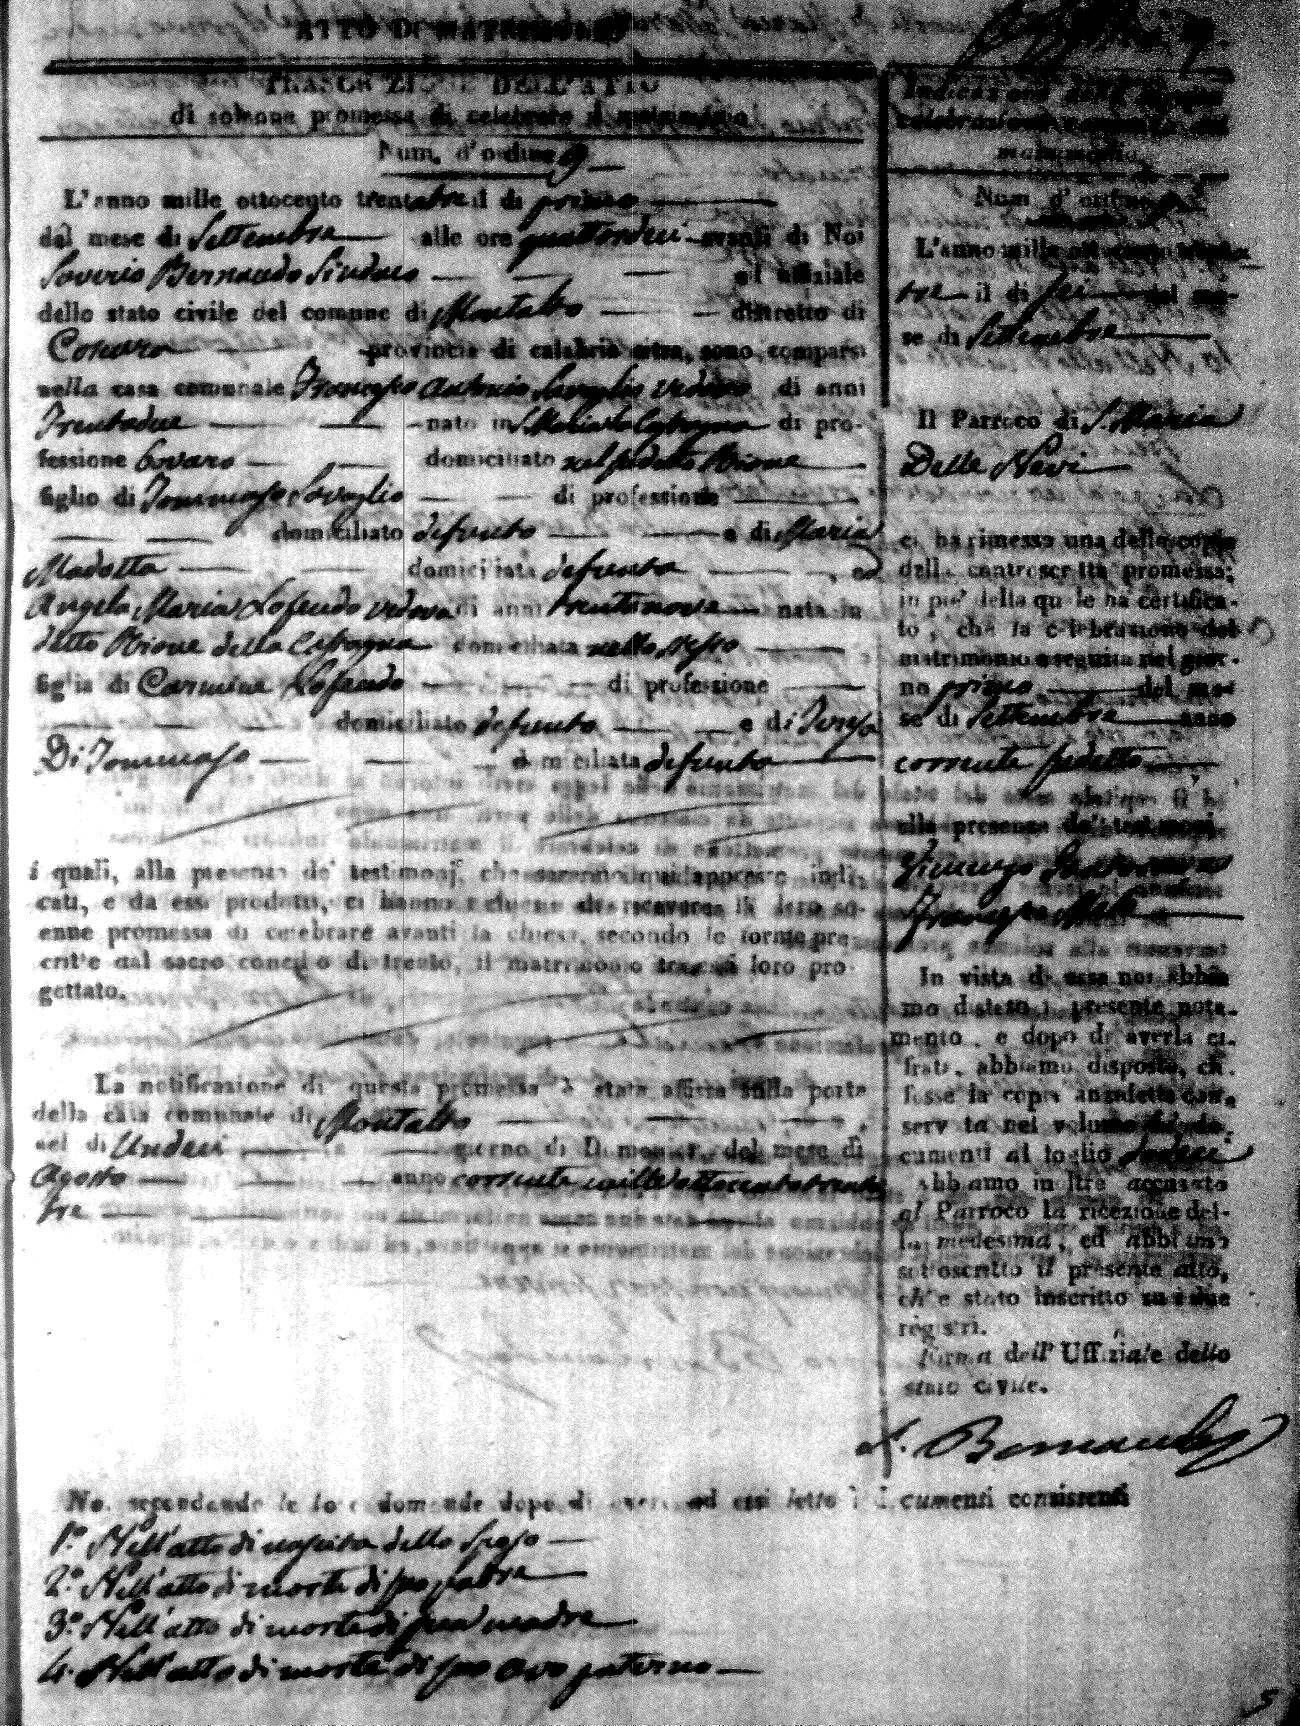 ATTO DI MATRIMONIO
TRASCRIZIONE DELL'ATTO
di solenne promessa di celebrare il matrimonio
Num. d'ordine 9
L'anno mille ottocento trentatre il di primo
del mese di Settembre alle ore quattordeci avanti di Noi
Saverio Bernaudo Sindaco ed uffiziale
dello stato civile del comune di Montalto distretto di
Cosenza provincia di calabria citra, sono comparsi
nella casa comunale Francesco Antonio vedovo di anni
Trentadue nato in S. Maria la di pro-
fessione bovaro domiciliato nel Rione
figlio di Tommaso di professione
domiciliato defunto e di Maria
domiciliata defunta, ed
Angela Maria Lofendo vedova di anni trentanove nata in
detto Rione della domiciliata nello stesso
figlia di Carmine Lofendo di professione
domiciliato defunto e di Teresa
Di Tommaso domiciliata defunta
i quali, alla presenza de' testimonj, che saranno qui appresso indi-
cati, e da essi prodotti, ci hanno richiesto di ricevere la loro so-
enne promessa di celebrare avanti la chiesa, secondo le forme pre
crit'e dal sacro concilio di trento, il matrimonio tra di loro pro-
gettato.
La notificazione di questa promessa è stata affissa sulla porta
della casa comunale di Montalto
nel di Undeci giorno di Domenica del mese di
Agosto anno corrente mille ottocento trenta
tre
Indicazione della
celebrazione canonica del
matrimonio.
Num d'ordine
L'anno mille ottocento trenta
tre il di sei del me-
se di Settembre
Il Parroco di S. Maria
Delle Nevi
ci ha rimesso una delle copie
della controscritta promessa;
in piè della quale ha certifica-
to, che la celebrazione del
matrimonio è seguita nel gior-
no primo del me-
se di Settembre anno
corrente
alla presenza de' testimonj
Francesco
In vista di essa noi abbia
mo disteso il presente nota-
mento, e dopo di averla ci-
frata, abbiamo disposto, ch.
fosse la copia anzidetta con-
servata nel volume de' do-
cumenti al foglio dodeci
Abbiamo inoltre accusato
al Parroco la ricezione del-
la medesima, ed abbiamo
sottoscritto il presente atto,
ch'è stato inscritto su i due
registri.
Firma dell' Uffiziale dello
stato civile.
S. Bernaudo
Noi secondando le loro domande dopo di aver ad essi letto i documenti consistenti
1.º Nell'atto di nascita dello sposo
2.º Nell'atto di morte di suo padre
3.º Nell'atto di morte di sua madre
4. Nell'atto di morte di suo avo paterno